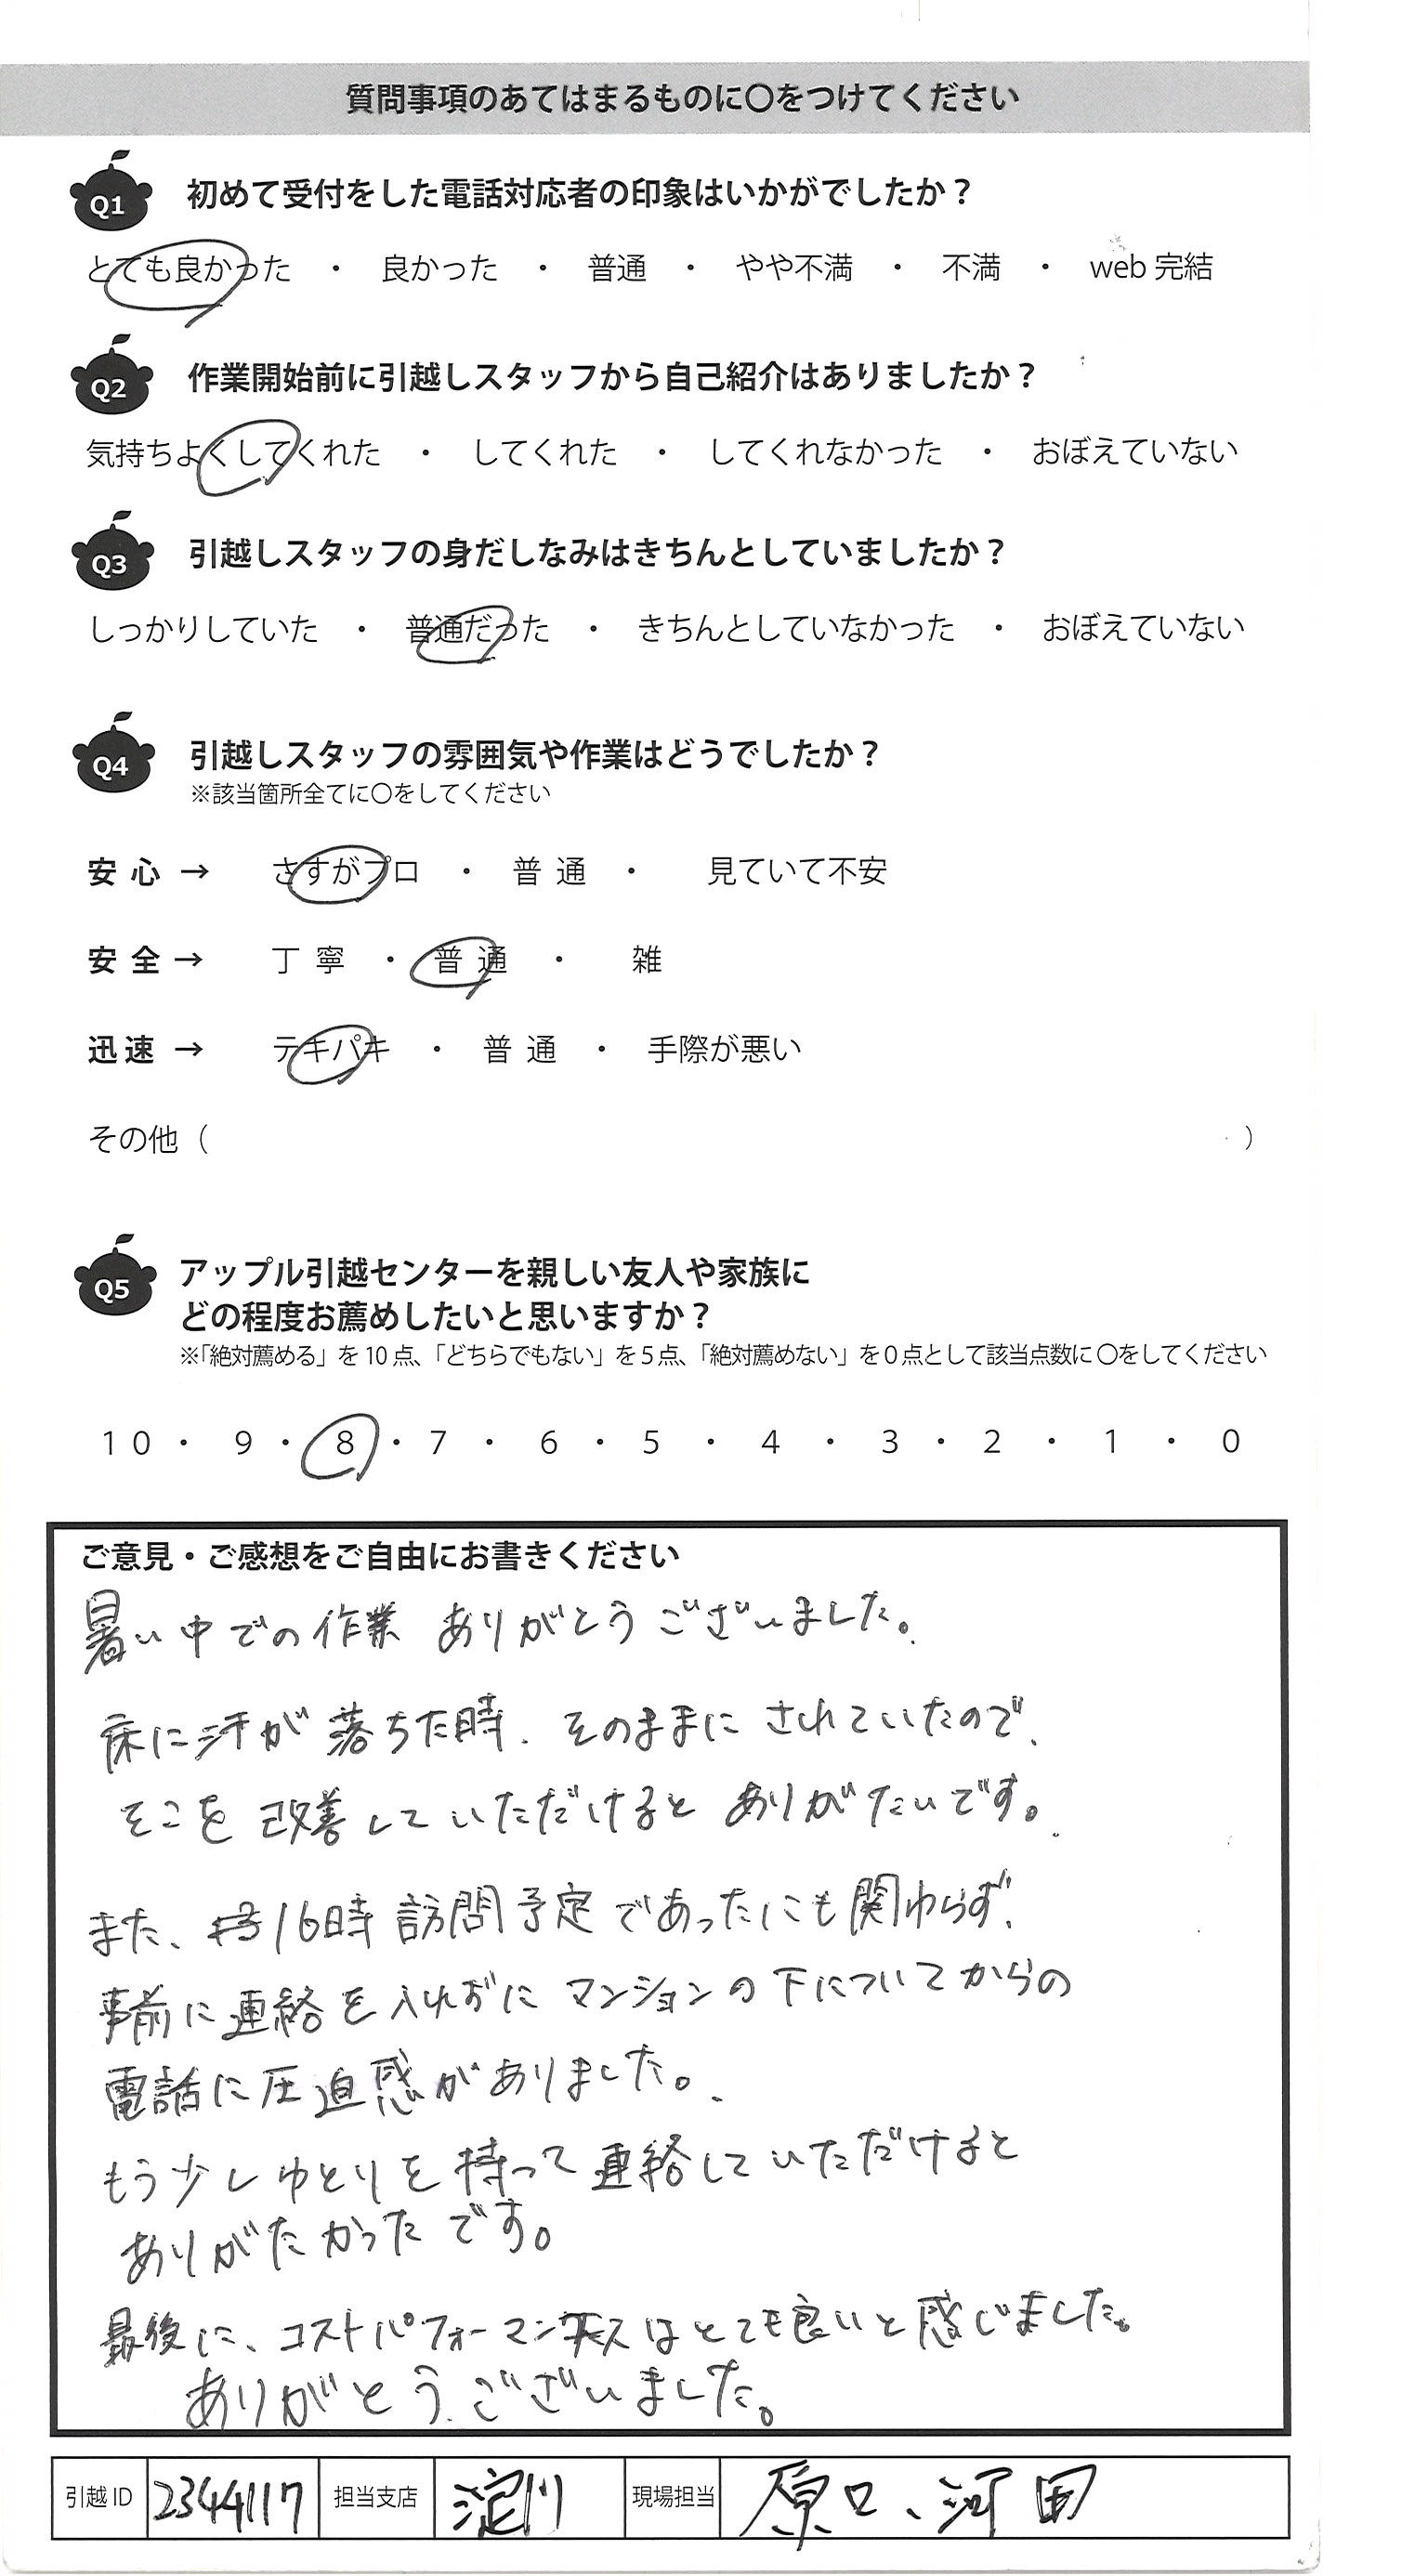 質問事項のあてはまるものに〇をつけてください
Q1 初めて受付をした電話対応者の印象はいかがでしたか？
とても良かった ・ 良かった ・ 普通 ・ やや不満 ・ 不満 ・ web 完結
Q2 作業開始前に引越しスタッフから自己紹介はありましたか？
気持ちよくしてくれた ・ してくれた ・ してくれなかった ・ おぼえていない
Q3 引越しスタッフの身だしなみはきちんとしていましたか？
しっかりしていた ・ 普通だった ・ きちんとしていなかった ・ おぼえていない
Q4 引越しスタッフの雰囲気や作業はどうでしたか？
※該当箇所全てに〇をしてください
安心 → さすがプロ ・ 普通 ・ 見ていて不安
安全 → 丁寧 ・ 普通 ・ 雑
迅速 → テキパキ ・ 普通 ・ 手際が悪い
その他（ ）
Q5 アップル引越センターを親しい友人や家族に
どの程度お薦めしたいと思いますか？
※「絶対薦める」を10点、「どちらでもない」を5点、「絶対薦めない」を0点として該当点数に〇をしてください
10 ・ 9 ・ 8 ・ 7 ・ 6 ・ 5 ・ 4 ・ 3 ・ 2 ・ 1 ・ 0
ご意見・ご感想をご自由にお書きください
暑い中での作業 ありがとうございました。
床に汗が落ちた時、そのままにされていたので、
そこを改善していただけるとありがたいです。
また、16時訪問予定であったにも関わらず、
事前に連絡を入れずにマンションの下についてからの
電話に圧迫感がありました。
もう少しゆとりを持って連絡していただけると
ありがたかったです。
最後に、コストパフォーマンスはとても良いと感じました。
ありがとうございました。
引越ID 2344117 担当支店 淀川 現場担当 原口、河田